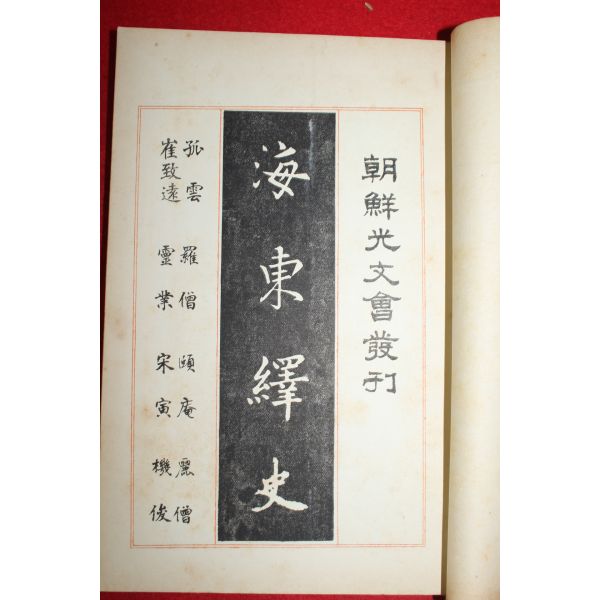 朝鮮光文會發刊
海東繹史
孤雲 羅僧 頤庵 麗僧
崔致遠 靈業 宋寅 機俊